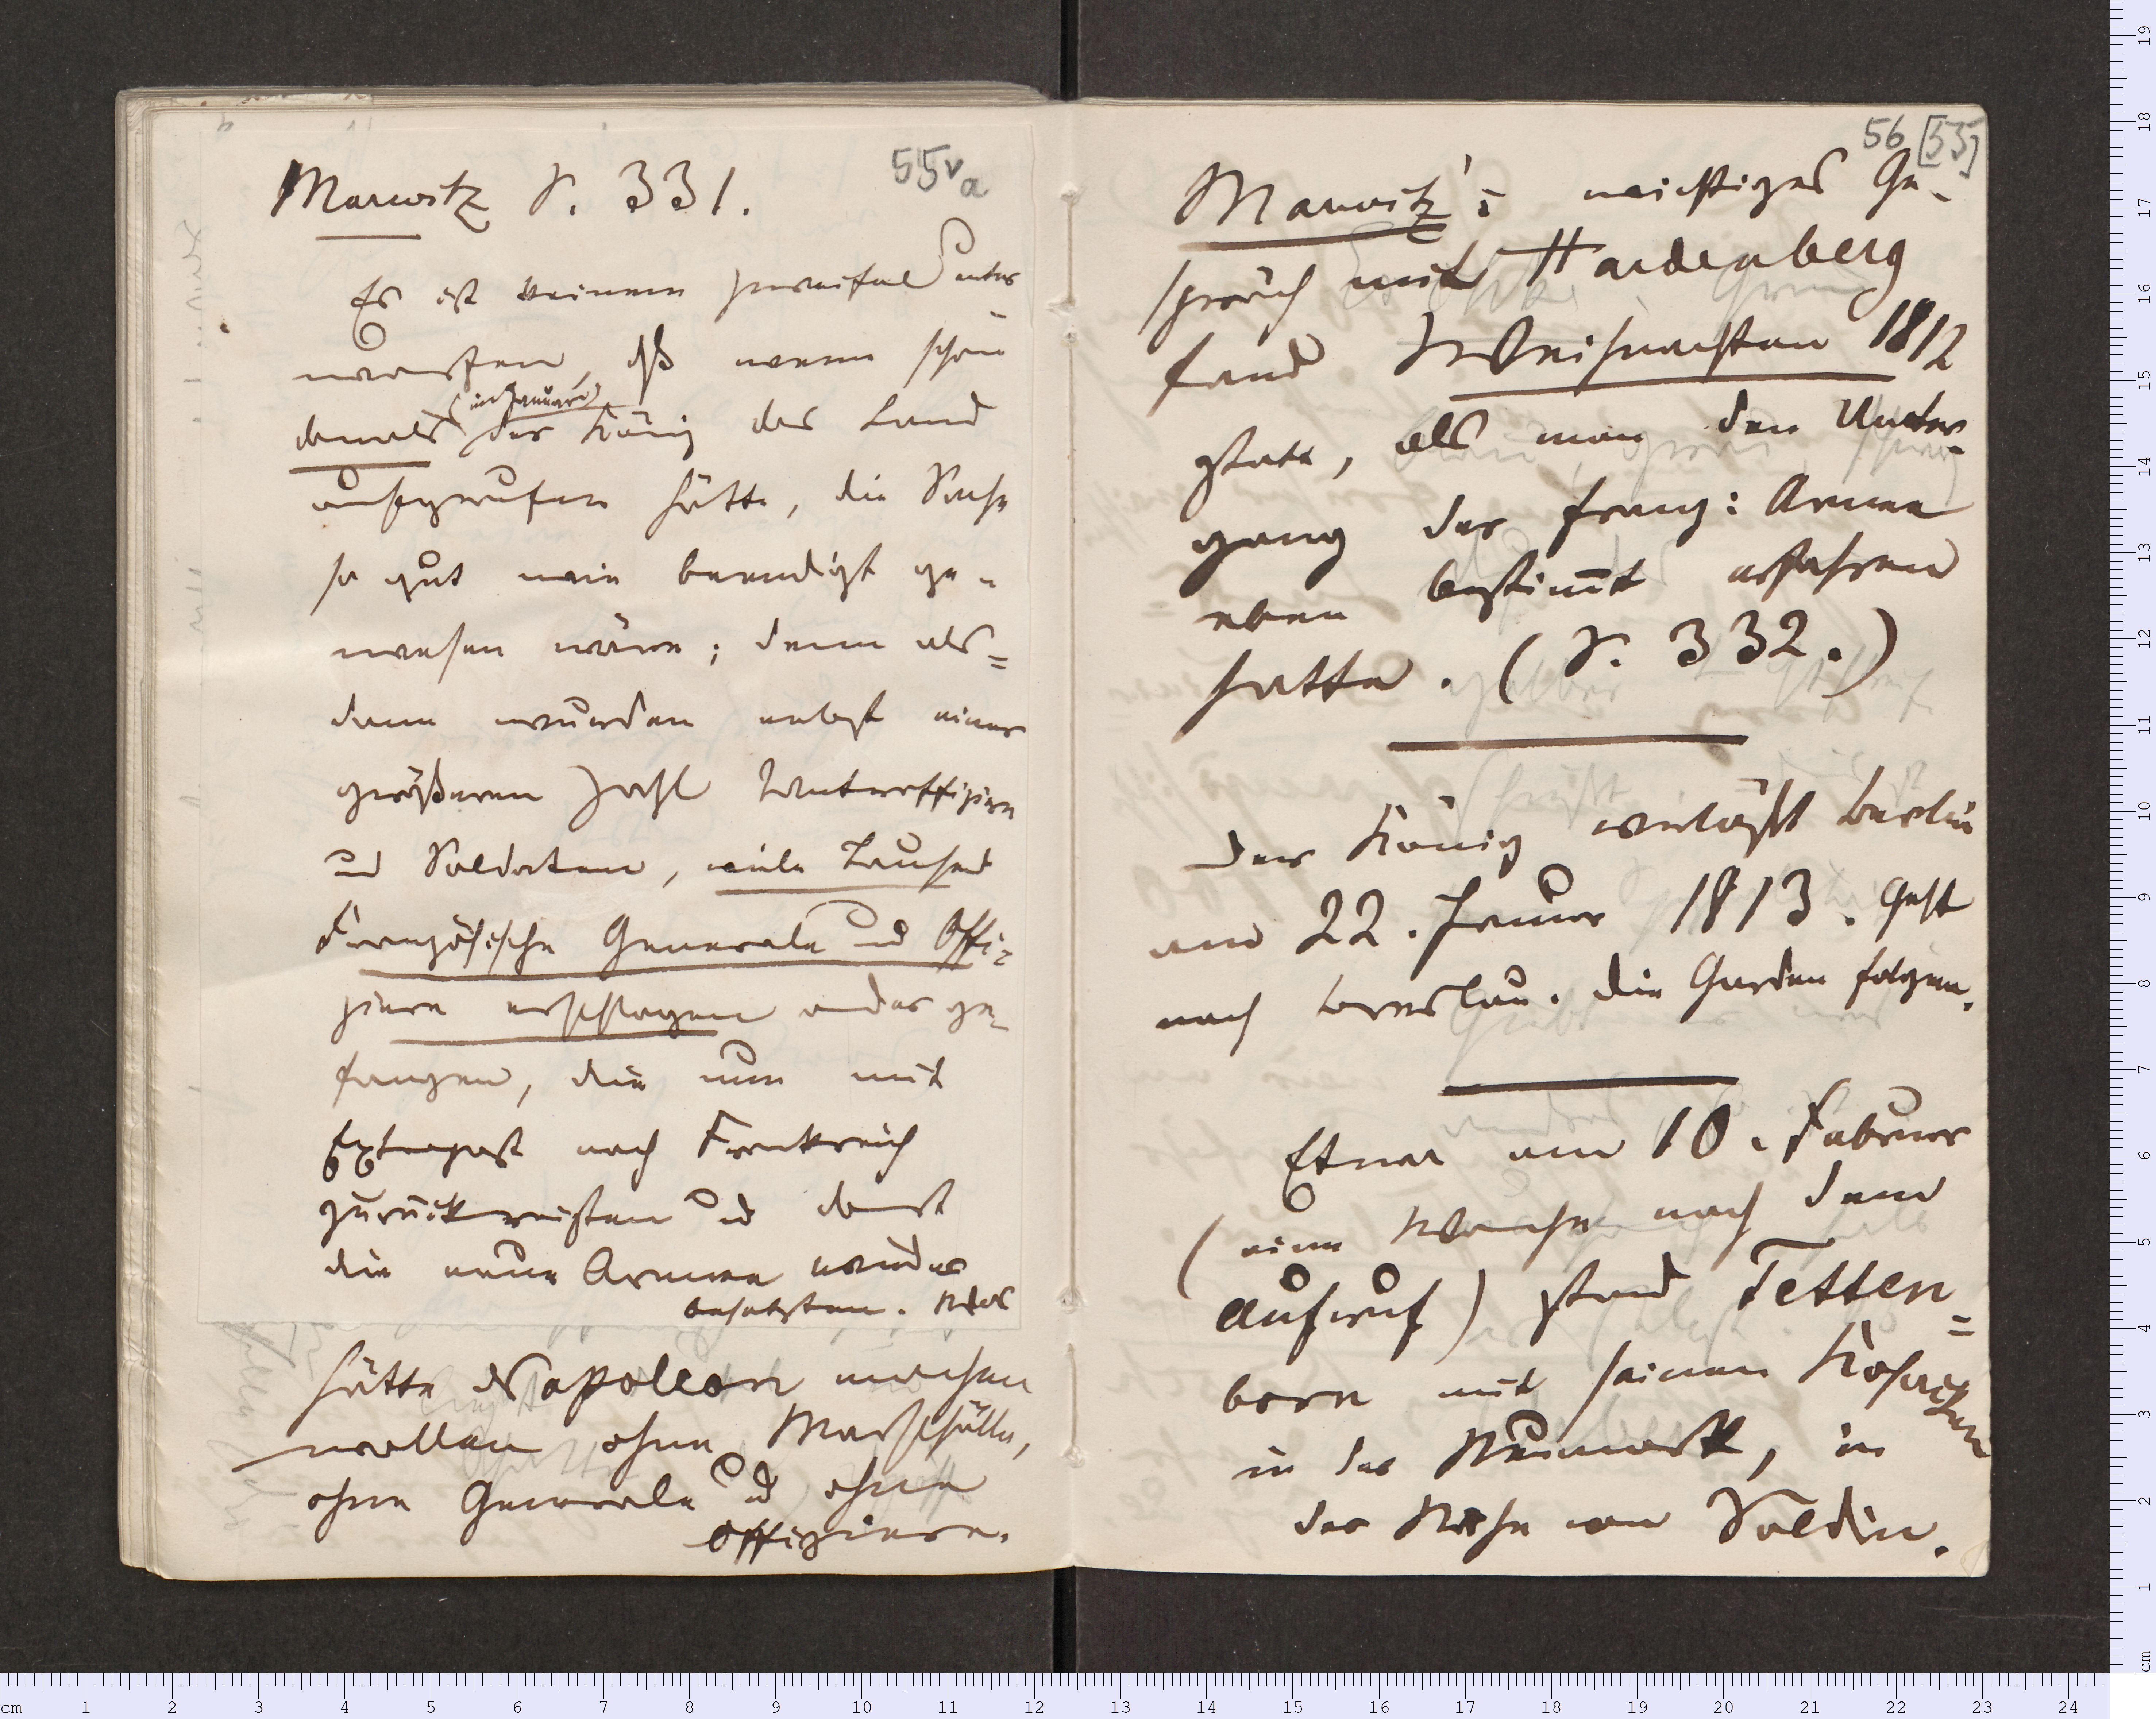 55va
Marwitz S. 331.
Es ist keinem Zweifel unter
worfen, dß wenn schon
damals (im Januar) der König das Land
aufgerufen hätte, die Sache
so gut wie beendigt ge-
wesen wäre; denn als=
dann wurden nebst einer
größeren Zahl Unteroffiziere
und Soldaten, viele Tausend
Französische Generale und Offi=
ziere erschlagen oder ge-
fangen, die nun mit
Extrapost nach Frankreich
zurückreisten und damit
die neue Armee wieder
besetzten. Was
hätte Napoleon machen
wollen ohne Marschälle,
ohne Generale und ohne
Offiziere.
56 [55]
Marwitz's wichtiges Ge-
spräch mit Hardenberg
fand Weihnachten 1812
statt, als man den Unter-
gang der franz: Armee
eben bestimt erfahren
hatte. (S. 332.)
Der König verläßt Berlin
am 22. Januar 1813. Geht
nach Breslau. Die Garden folgen.
Etwa am 10. Februar
(eine Woche nach dem
Aufruf) stand Tetten=
born mit seinen Kosacken
in der Neumark, in
der Nähe von Soldin.